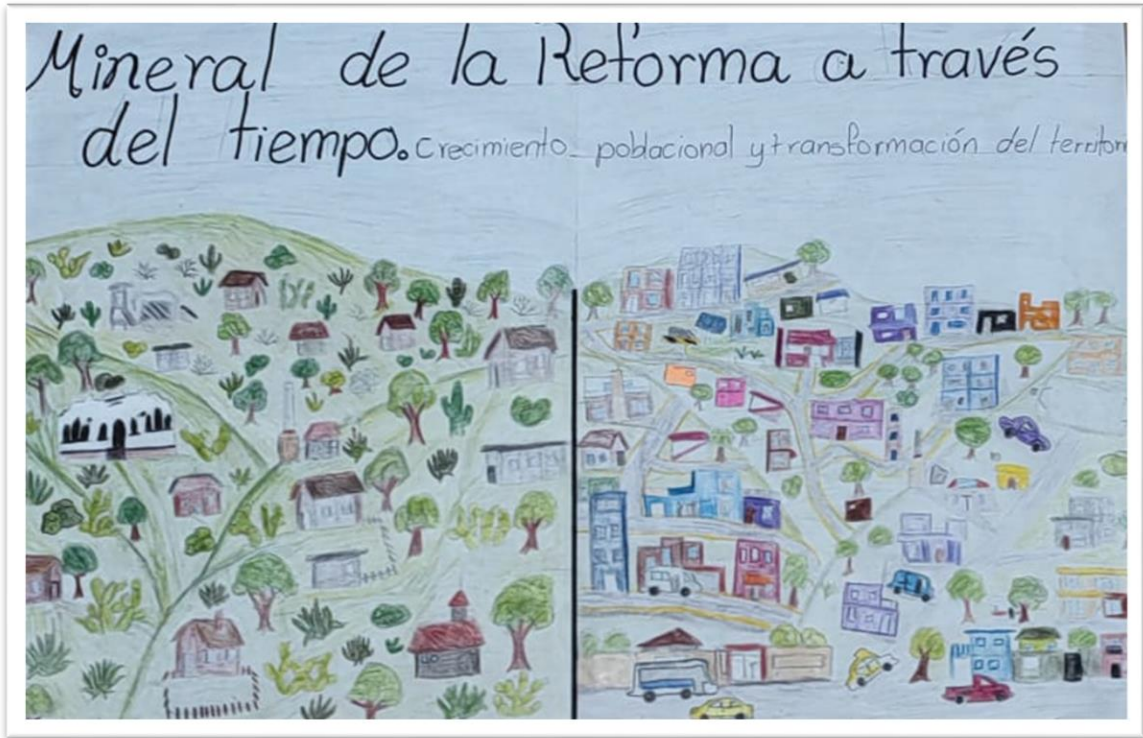 Mineral de la Reforma a través
del tiempo. Crecimiento poblacional y transformación del territori